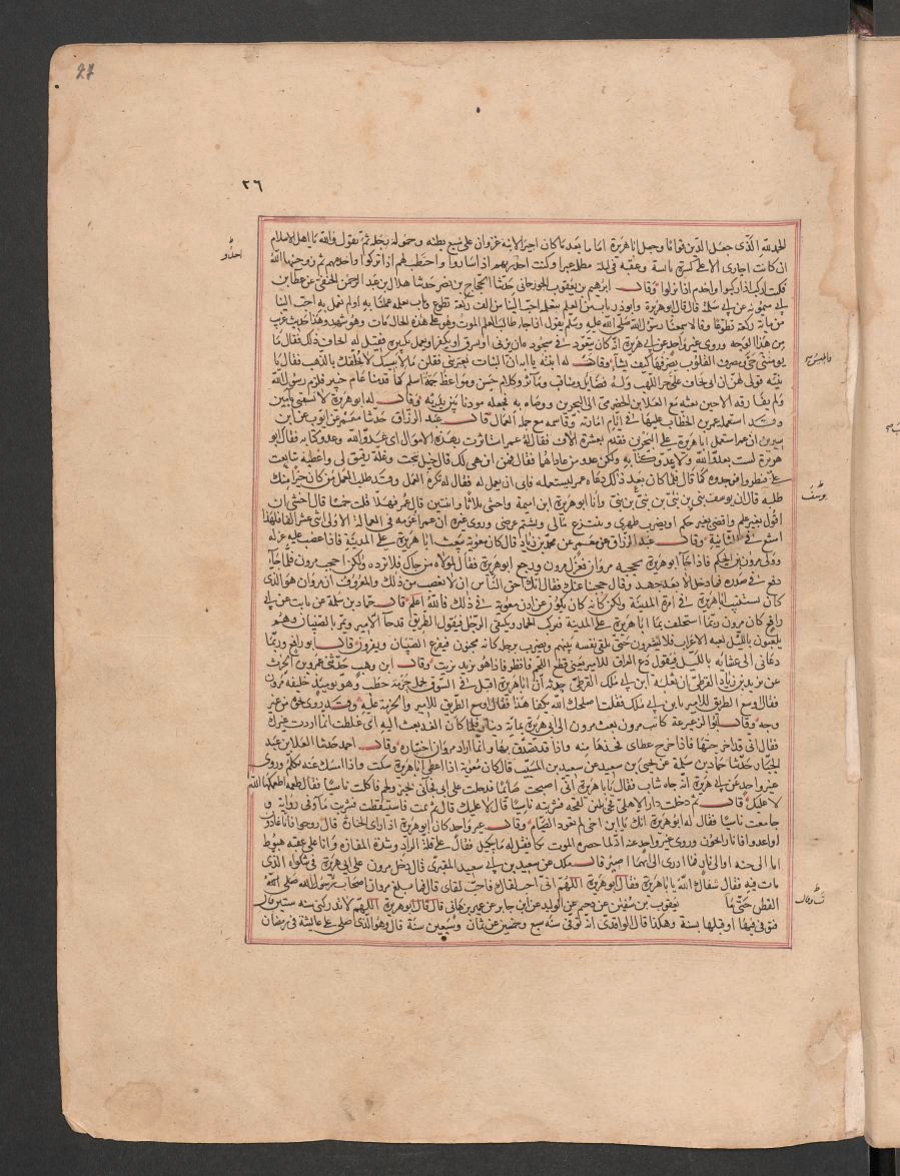 27
٢٦
الحمد لله الذي جعل الدين قواما وجعل ابا هريرة اماما بعد ما كان اجيرا لابنة غزوان على شبع بطنه وحمولة رجله ثم يقول والله يا اهل الاسلام
ان كانت اجارتي الا على كسرة يابسة وعقبة في ليلة مظلمة
قلت اركب اذا ركبوا واخدم اذا نزلوا وقال ابرهيم بن يعقوب الجوزجاني حدثنا الحجاج بن نصر حدثنا هلال بن عبد الرحمن الحنفي عن عطا بن
ابي ميمونه عن ابي سلمة قال قال ابو هريرة وابو ذر باب من العلم نتعلمه احب الينا من الف ركعة تطوع وباب نعلمه عملنا به اولم نعمل به احب الينا
من مائة ركعة تطوعا وقالا سمعنا رسول الله صلى الله عليه وسلم يقول اذا جاء طالب العلم الموت وهو على هذه الحال مات وهو شهيد وهذا حديث غريب
من هذا الوجه وروى غير واحد عن ابي هريرة انه كان يتعوذ في سجوده ان يزني او يسرق او يكفر او يعمل كبيرة فقيل له اتخاف ذلك فقال ما
يومنني وابليس حي ومصرف القلوب يصرفها كيف يشاء وقالت له ابنته يا ابة ان البنات يعيرنني فقلن ما لابيك لا يحليك بالذهب فقال يا
بنية قولي لهن ان ابي يخاف علي حر اللهب وله فضائل ومناقب ومآثر وكلام حسن ومواعظ جمة اسلم كما قدمنا عام خيبر فلزم رسول الله
ولم يفارقه الا حين بعثه مع العلا بن الحضرمي الى البحرين ووصاه به فجعله موذنا بين يديه وقال له ابو هريرة لا تسبقني بآمين
وقد استعمله عمر بن الخطاب عليها في ايام امارته وقاسمه مع جملة العمال قال عبد الرزاق حدثنا معمر عن ايوب عن ابن
سيرين ان عمر استعمل ابا هريرة على البحرين فقدم بعشرة الاف فقال له عمر استاثرت بهذه الاموال اي عدو الله وعدو كتابه فقال ابو
هريرة لست بعدو الله ولا عدو كتابه ولكن عدو من عاداهما فقال فمن اين هي لك قال خيل نتجت وغلة رقيق لي واعطية تتابعت
علي فنظروا فوجدوه كما قال فلما كان بعد ذلك دعاه عمر ليستعمله فابى ان يعمل له فقال له تكره العمل وقد طلب العمل من كان خيرا منك
طلبه قال ان يوسف نبي بن نبي بن نبي بن نبي وانا ابو هريرة ابن اميمة واخشى ثلاثا واثنتين قال عمر فهلا قلت خمسا قال اخشى ان
اقول بغير علم واقضي بغير حكم او يضرب ظهري وينتزع مالي ويشتم عرضي وروى غيره ان عمر اغرمه في العمالة الاولى اثنى عشر الفا فلهذا
امتنع في الثانية وقال عبد الرزاق عن معمر عن محمد بن زياد قال كان معوية يبعث ابا هريرة على المدينة فاذا غضب عليه عزله
وولى مرون بن الحكم فاذا جا ابو هريرة يحجبه مروان فعزل مرون ورجع ابو هريرة فقال لمولاه من جاك فلا ترده ولكن احجب مرون فلما جا
دفع في صدره فما دخل الا بعد جهد وقال حجبنا عنك فقال انك احق الناس ان لا تغضب من ذلك والمعروف ان مروان هو الذي
كان يستنيب ابا هريرة في امرة المدينة ولكن كانه كان يكون عن اذن معوية في ذلك فالله اعلم قال حماد بن سلمة عن ثابت عن ابي
رافع كان مرون ربما استخلف ابا هريرة على المدينة فيركب الحمار ويلقى الرجل فيقول الطريق قد جا الامير ويمر بالصبيان وهم
يلعبون بالليل لعبة الاعراب فلا يشعرون حتى يلقي نفسه بينهم ويضرب برجله كانه مجنون فيفزع الصبيان ويفرون قال ابو رافع وربما
دعاني الى عشائه بالليل فيقول دع العراق للامير يعني قطع اللحم فانظر فاذا هو ثريد بزيت وقال ابن وهب حدثني عمرو بن الحرث
عن يزيد بن زياد القرظي ان ثعلبة ابن ابي ملك القرظي حدثه ان ابا هريرة اقبل في السوق يحمل حزمة حطب وهو يومئذ خليفة لمرون
فقال اوسع الطريق للامير يا بن ابي ملك فقلت اصلحك الله يكفي هذا فقال اوسع الطريق للامير والحزمة عليه
فقال اني قد اخرجتها فاذا خرج عطاي فخذها منه واذا قد تصدق بها وانما اراد مروان اختباره وقال احمد حدثنا
الجبار حدثنا حماد بن سلمة عن يحيى بن سعيد عن سعيد بن المسيب قال كان معوية اذا اعطى ابا هريرة سكت واذا امسك عنه تكلم وروى
غير واحد عن ابي هريرة انه جاه شاب فقال يا ابا هريرة اني اصبحت صائما فدخلت على ابي فجاني بخبز ولحم فاكلت ناسيا فقال طعمة اطعمكها الله
لا عليك قال ثم دخلت دارا لاهلي فاتي بلبن لقحة فشربته ناسيا قال لا عليك قال ثم نمت فاستيقظت فشربت ما وفي رواية
جامعت ناسيا فقال له ابو هريرة انك يا ابن اخي لم تعود الصيام وقال غير واحد كان ابو هريرة اذا راى الجنازة قال روحوا فانا غادون
او اغدوا فانا رائحون وروى غير واحد عنه انه لما حضره الموت بكى فقيل له ما يبكيك فقال على قلة الزاد وشدة المفازة وانا على عقبة هبوط
اما الى جنة او الى نار فما ادري الى ايهما اصير قال ملك عن سعيد بن ابي سعيد المقبري قال دخل مرون على ابي هريرة في شكواه الذي
مات فيه فقال شفاك الله يا ابا هريرة فقال ابو هريرة اللهم اني احب لقاك فاحب لقاي قال فما بلغ مروان اصحاب
القطن حتى مات يعقوب بن سفين عن دحيم عن الوليد عن ابن جابر عن عمير بن هاني قال قال ابو هريرة اللهم لا تدركني سنة ستين قال
فتوفي فيها او قبلها بسنة وهكذا قال الواقدي انه توفي سنة تسع وخمسين عن ثمان وسبعين سنة قال وهو الذي صلى على عائشة في رمضان
وابليس حي
يوسف